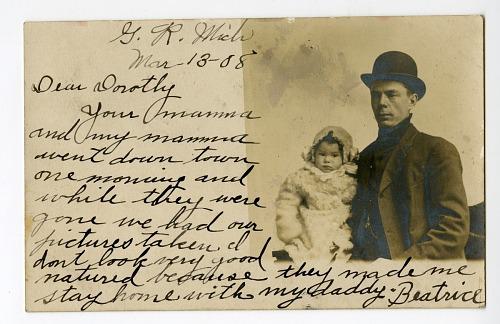 G. R. Mich
Mar-13-08
Dear Dorothy
Your mamma
and my mamma
went down town
one morning and
while they were
gone we had our
pictures taken I
dont look very good
natured because they made me
stay home with my daddy. Beatrice